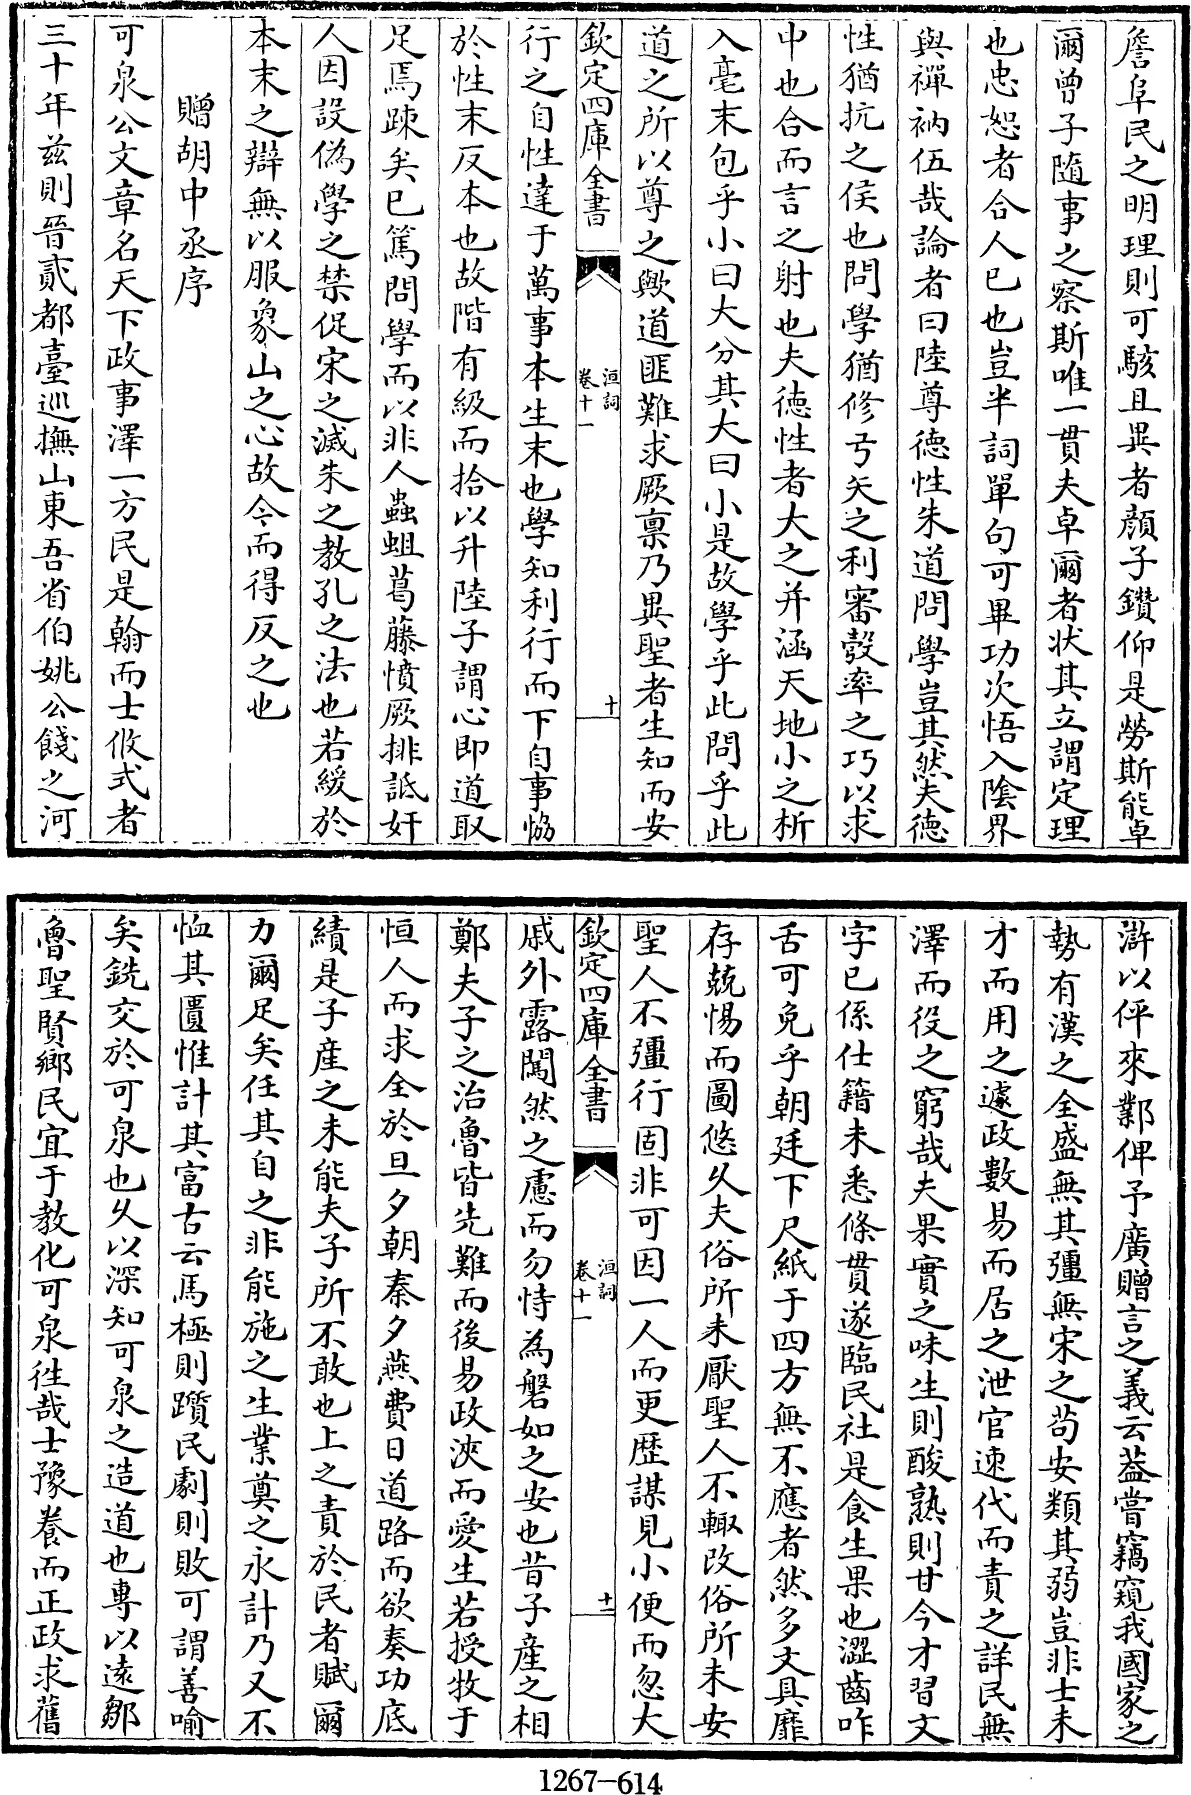 詹阜民之明理則可駭且異者顔子鑽仰是勞斯能卓
爾曾子隨事之察斯唯一貫夫卓爾者狀其立謂定理
也忠恕者合人已也豈半詞單句可畢功次悟入陰界
與禪衲伍哉論者曰陸尊德性朱道問學豈其然夫德
性猶抗之侯也問學猶修弓矢之利審彀率之巧以求
中也合而言之射也夫德性者大之并涵天地小之析
入毫末包乎小曰大分其大曰小是故學乎此問乎此
道之所以尊之歟道匪難求厥禀乃異聖者生知而安
欽定四庫全書
洹詞
卷十一
十
行之自性達于萬事本生末也學知利行而下自事恊
於性末反本也故階有級而拾以升陸子謂心即道取
足焉踈矣已篤問學而以非人蟲蛆葛藤憤厥排詆奸
人因設偽學之禁促宋之滅朱之教孔之法也若緩於
本末之辯無以服象山之心故今而得反之也
贈胡中丞序
可泉公文章名天下政事澤一方民是翰而士攸式者
三十年兹則晉貳都臺巡撫山東吾省伯姚公餞之河
滸以伻來鄴俾予廣贈言之義云葢嘗竊窺我國家之
勢有漢之全盛無其彊無宋之苟安類其弱豈非士未
才而用之遽政數易而居之泄官速代而責之詳民無
澤而役之窮哉夫果實之味生則酸熟則甘今才習文
字已係仕籍未悉條貫遂臨民社是食生果也澀齒咋
舌可免乎朝廷下尺紙于四方無不應者然多文具靡
存兢惕而圖悠久夫俗所未厭聖人不輙改俗所未安
聖人不彊行固非可因一人而更歷謀見小便而忽大
欽定四庫全書
洹詞
卷十一
十一
戚外露闖然之慮而勿恃為磐如之安也昔子産之相
鄭夫子之治魯皆先難而後易政浹而愛生若授牧于
恒人而求全於旦夕朝秦夕燕費日道路而欲奏功底
績是子産之未能夫子所不敢也上之責於民者賦爾
力爾足矣任其自之非能施之生業奠之永計乃又不
恤其匱惟計其富古云馬極則躓民劇則敗可謂善喻
矣銑交於可泉也久以深知可泉之造道也專以逺鄒
魯聖賢鄉民宜于教化可泉徃哉士豫養而正政求舊
1267-614